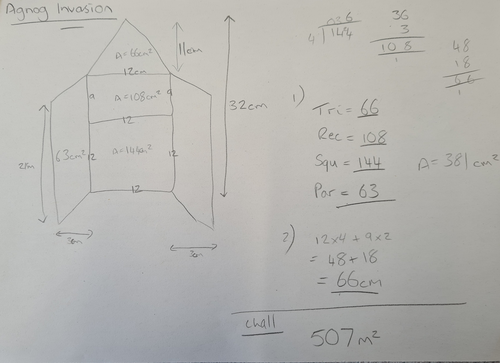 Agnog Invasion
A=66cm²
11cm
12cm
9
A=108cm²
9
12
32cm
21cm
63cm²
12
A=144m²
12
12
3cm
3cm
0 3 6
4 144
36
3
108
1
48
18
66
1
1)
Tri = 66
Rec = 108
Squ = 144
Par = 63
A = 381cm²
2) 12x4 + 9x2
= 48 + 18
= 66cm
chall
507m²